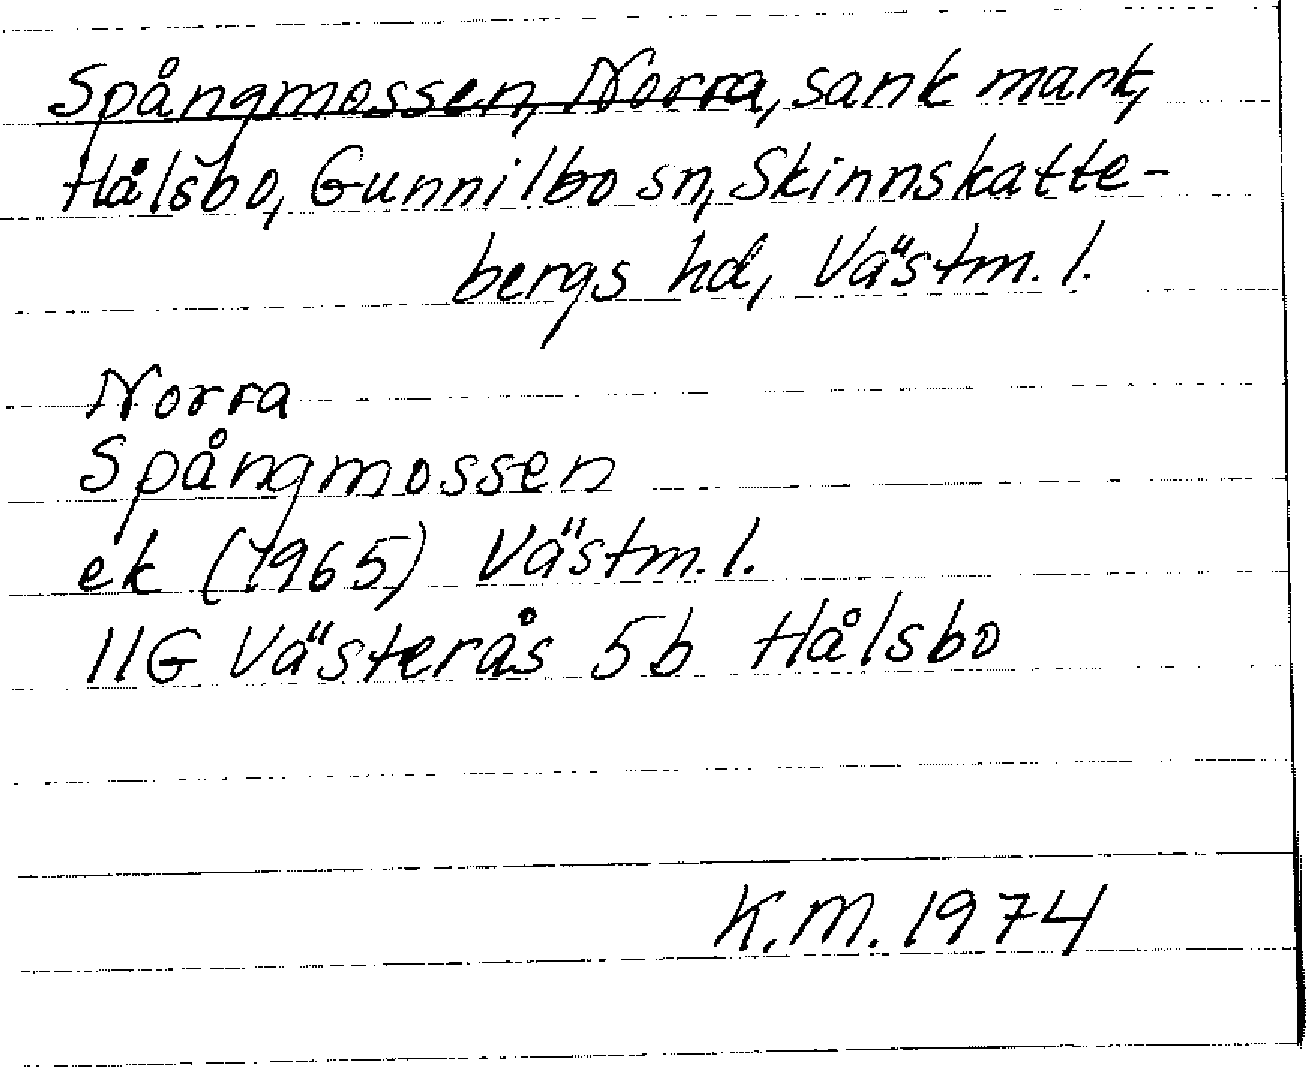 Spångmossen, Norra, sank mark,
Hålsbo, Gunnilbo sn, Skinnskatte-
bergs hd, Västm. l.
Norra
Spångmossen
ek (1965) Västm. l.
11G Västerås 5b Hålsbo
K.M. 1974